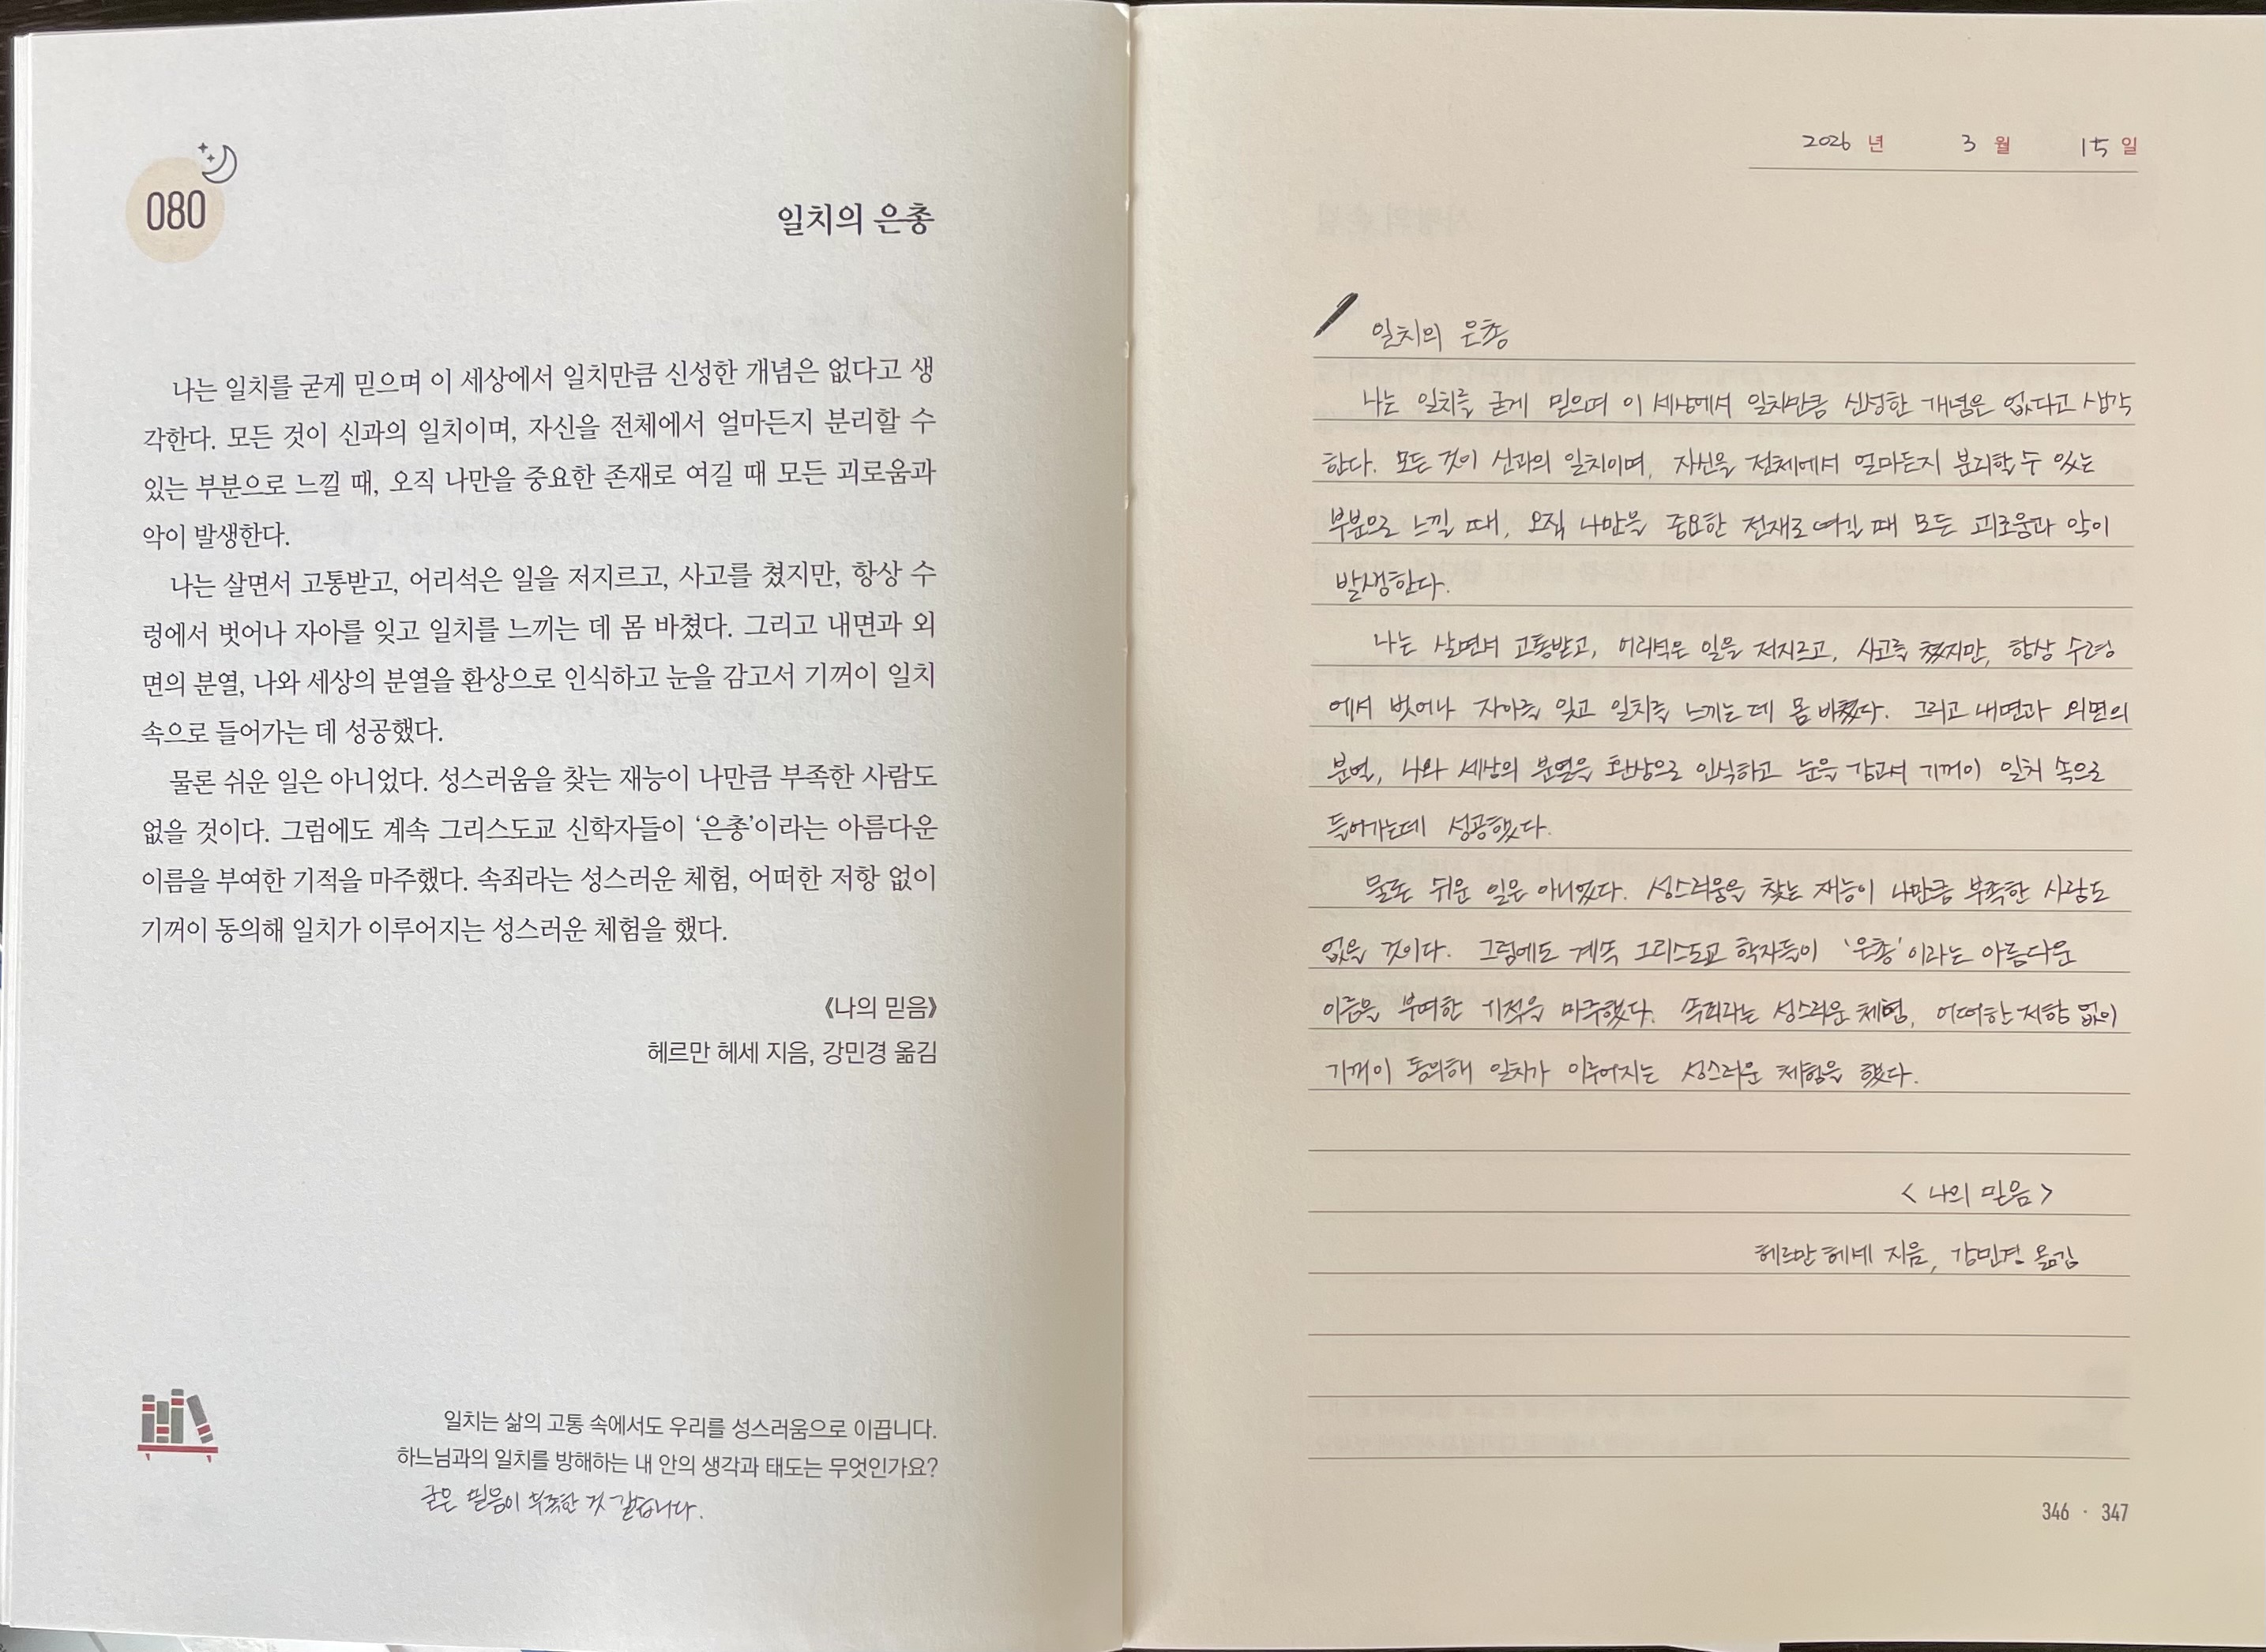 080
일치의 은총
나는 일치를 굳게 믿으며 이 세상에서 일치만큼 신성한 개념은 없다고 생
각한다. 모든 것이 신과의 일치이며, 자신을 전체에서 얼마든지 분리할 수
있는 부분으로 느낄 때, 오직 나만을 중요한 존재로 여길 때 모든 괴로움과
악이 발생한다.
나는 살면서 고통받고, 어리석은 일을 저지르고, 사고를 쳤지만, 항상 수
렁에서 벗어나 자아를 잊고 일치를 느끼는 데 몸 바쳤다. 그리고 내면과 외
면의 분열, 나와 세상의 분열을 환상으로 인식하고 눈을 감고서 기꺼이 일치
속으로 들어가는 데 성공했다.
물론 쉬운 일은 아니었다. 성스러움을 찾는 재능이 나만큼 부족한 사람도
없을 것이다. 그럼에도 계속 그리스도교 신학자들이 ‘은총’이라는 아름다운
이름을 부여한 기적을 마주했다. 속죄라는 성스러운 체험, 어떠한 저항 없이
기꺼이 동의해 일치가 이루어지는 성스러운 체험을 했다.
《나의 믿음》
헤르만 헤세 지음, 강민경 옮김
일치는 삶의 고통 속에서도 우리를 성스러움으로 이끕니다.
하느님과의 일치를 방해하는 내 안의 생각과 태도는 무엇인가요?
굳은 믿음이 부족한 것 같습니다.
2026 년 3 월 15 일
일치의 은총
나는 일치를 굳게 믿으며 이 세상에서 일치만큼 신성한 개념은 없다고 생각
한다. 모든 것이 신과의 일치이며, 자신을 전체에서 얼마든지 분리할 수 있는
부분으로 느낄 때, 오직 나만을 중요한 전재로 여길 때 모든 괴로움과 악이
발생한다.
나는 살면서 고통받고, 어리석은 일을 저지르고, 사고를 쳤지만, 항상 수렁
에서 벗어나 자아를 잊고 일치를 느끼는 데 몸 바쳤다. 그리고 내면과 외면의
분열, 나와 세상의 분열을 환상으로 인식하고 눈을 감고서 기꺼이 일치 속으로
들어가는데 성공했다.
물론 쉬운 일은 아니었다. 성스러움을 찾는 재능이 나만큼 부족한 사람도
없을 것이다. 그럼에도 계속 그리스도교 학자들이 ‘은총’이라는 아름다운
이름을 부여한 기적을 마주했다. 속죄라는 성스러운 체험, 어떠한 저항 없이
기꺼이 동의해 일치가 이루어지는 성스러운 체험을 했다.
< 나의 믿음 >
헤르만 헤세 지음, 강민경 옮김
346 · 347